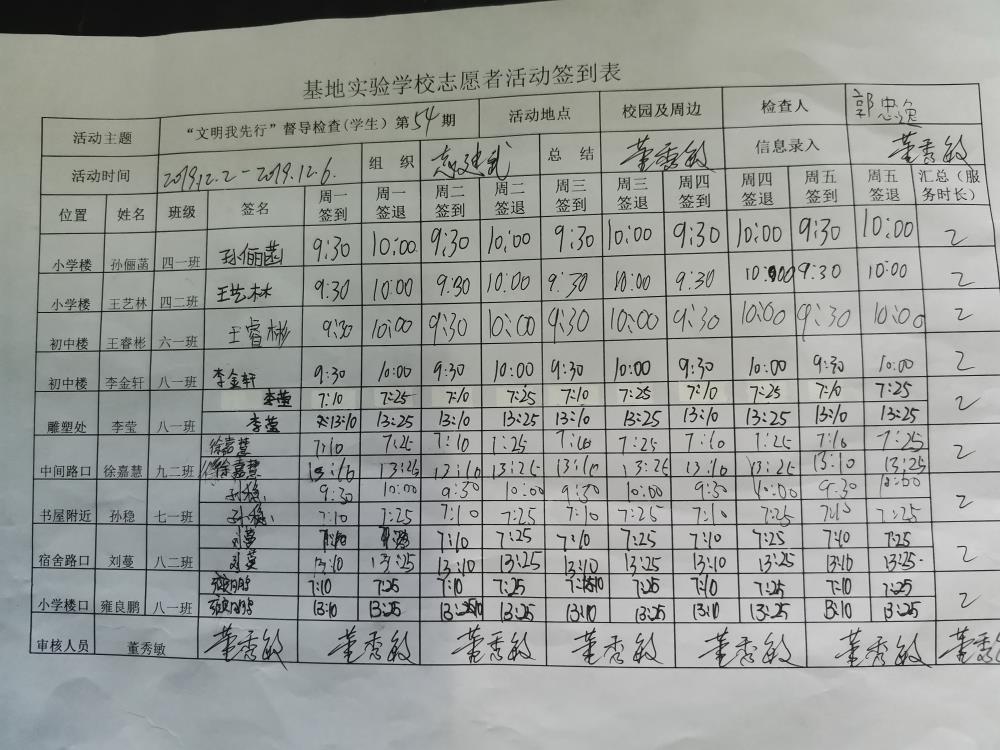 基地实验学校志愿者活动签到表
活动主题 “文明我先行”督导检查(学生)第54期 活动地点 校园及周边 检查人 郭忠
活动时间 2019.12.2-2019.12.6. 组织 总结 董秀敏 信息录入 董秀敏
位置 姓名 班级 签名 周一签到 周一签退 周二签到 周二签退 周三签到 周三签退 周四签到 周四签退 周五签到 周五签退 汇总（服务时长）
小学楼 孙俪菡 四一班 孙俪菡 9:30 10:00 9:30 10:00 9:30 10:00 9:30 10:00 9:30 10:00 2
小学楼 王艺林 四二班 王艺林 9:30 10:00 9:30 10:00 9:30 10:00 9:30 10:00 9:30 10:00 2
初中楼 王睿彬 六一班 王睿彬 9:30 10:00 9:30 10:00 9:30 10:00 9:30 10:00 9:30 10:00 2
初中楼 李金轩 八一班 李金轩 9:30 10:00 9:30 10:00 9:30 10:00 9:30 10:00 9:30 10:00 2
李莹 7:10 7:25 7:10 7:25 7:10 7:25 7:10 7:25 7:10 7:25
雕塑处 李莹 八一班 李莹 13:10 13:25 13:10 13:25 13:10 13:25 13:10 13:25 13:10 13:25 2
徐嘉慧 7:10 7:25 7:10 7:25 7:10 7:25 7:10 7:25 7:10 7:25
中间路口 徐嘉慧 九二班 徐嘉慧 13:10 13:25 13:10 13:25 13:10 13:25 13:10 13:25 13:10 13:25 2
孙稳 9:30 10:00 9:30 10:00 9:30 10:00 9:30 10:00 9:30 10:00
书屋附近 孙稳 七一班 孙稳 7:10 7:25 7:10 7:25 7:10 7:25 7:10 7:25 7:10 7:25 2
刘蔓 7:10 7:25 7:10 7:25 7:10 7:25 7:10 7:25 7:10 7:25
宿舍路口 刘蔓 八二班 刘蔓 13:10 13:25 13:10 13:25 13:10 13:25 13:10 13:25 13:10 13:25 2
7:10 7:25 7:10 7:25 7:10 7:25 7:10 7:25 7:10 7:25
小学楼口 雍良鹏 八一班 13:10 13:25 13:10 13:25 13:10 13:25 13:10 13:25 13:10 13:25 2
审核人员 董秀敏 董秀敏 董秀敏 董秀敏 董秀敏 董秀敏 董秀敏 董秀